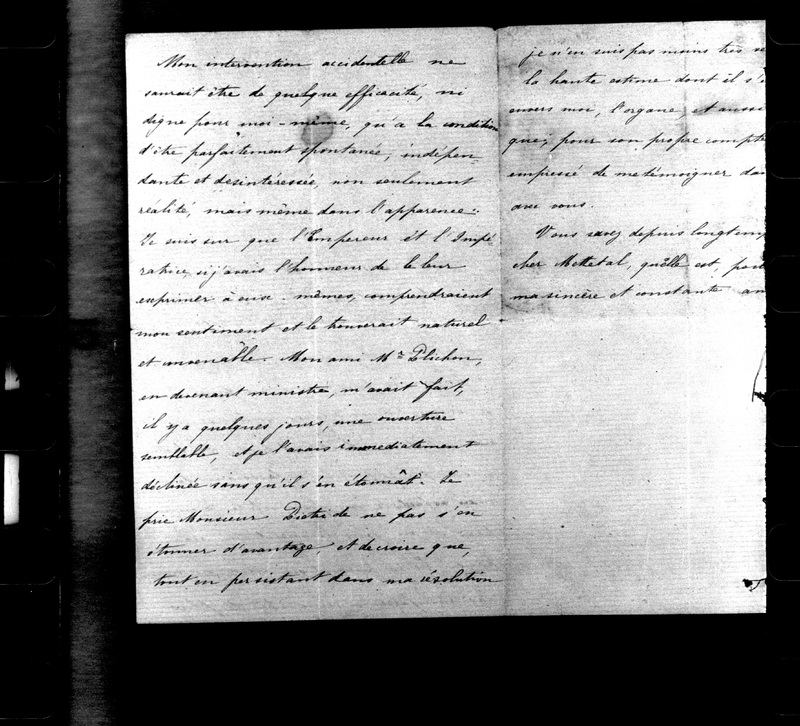 Mon intervention accidentelle ne
saurait être de quelque efficacité, ni
digne pour moi-même, qu'à la condition
d'être parfaitement spontanée, indépen-
dante et desintéressée, non seulement
réalité, mais même dans l'apparence.
Je suis sur que l'Empereur et l'Impé-
ratrice, si j'avais l'honneur de le leur
exprimer à eux-mêmes, comprendraient
mon sentiment et le trouverait naturel
et convenable. Mon ami Mr Plichon,
en devenant ministre, m'avait fait,
il y a quelques jours, une ouverture
semblable, et je l'avais immediatement
déclinée sans qu'il s'en étonnât. Je
prie Monsieur Pietri de ne pas s'en
étonner d'avantage, et de croire que,
tout en persistant dans ma résolution
je n'en suis pas moins très
la haute estime dont il s'
envers moi, l'organe, et aussi
que, pour son propre compte
empressé de me témoigner dan
avec vous.
Vous savez depuis longtemp
cher Mettetal, quelle est, pour
ma sincère et constante am